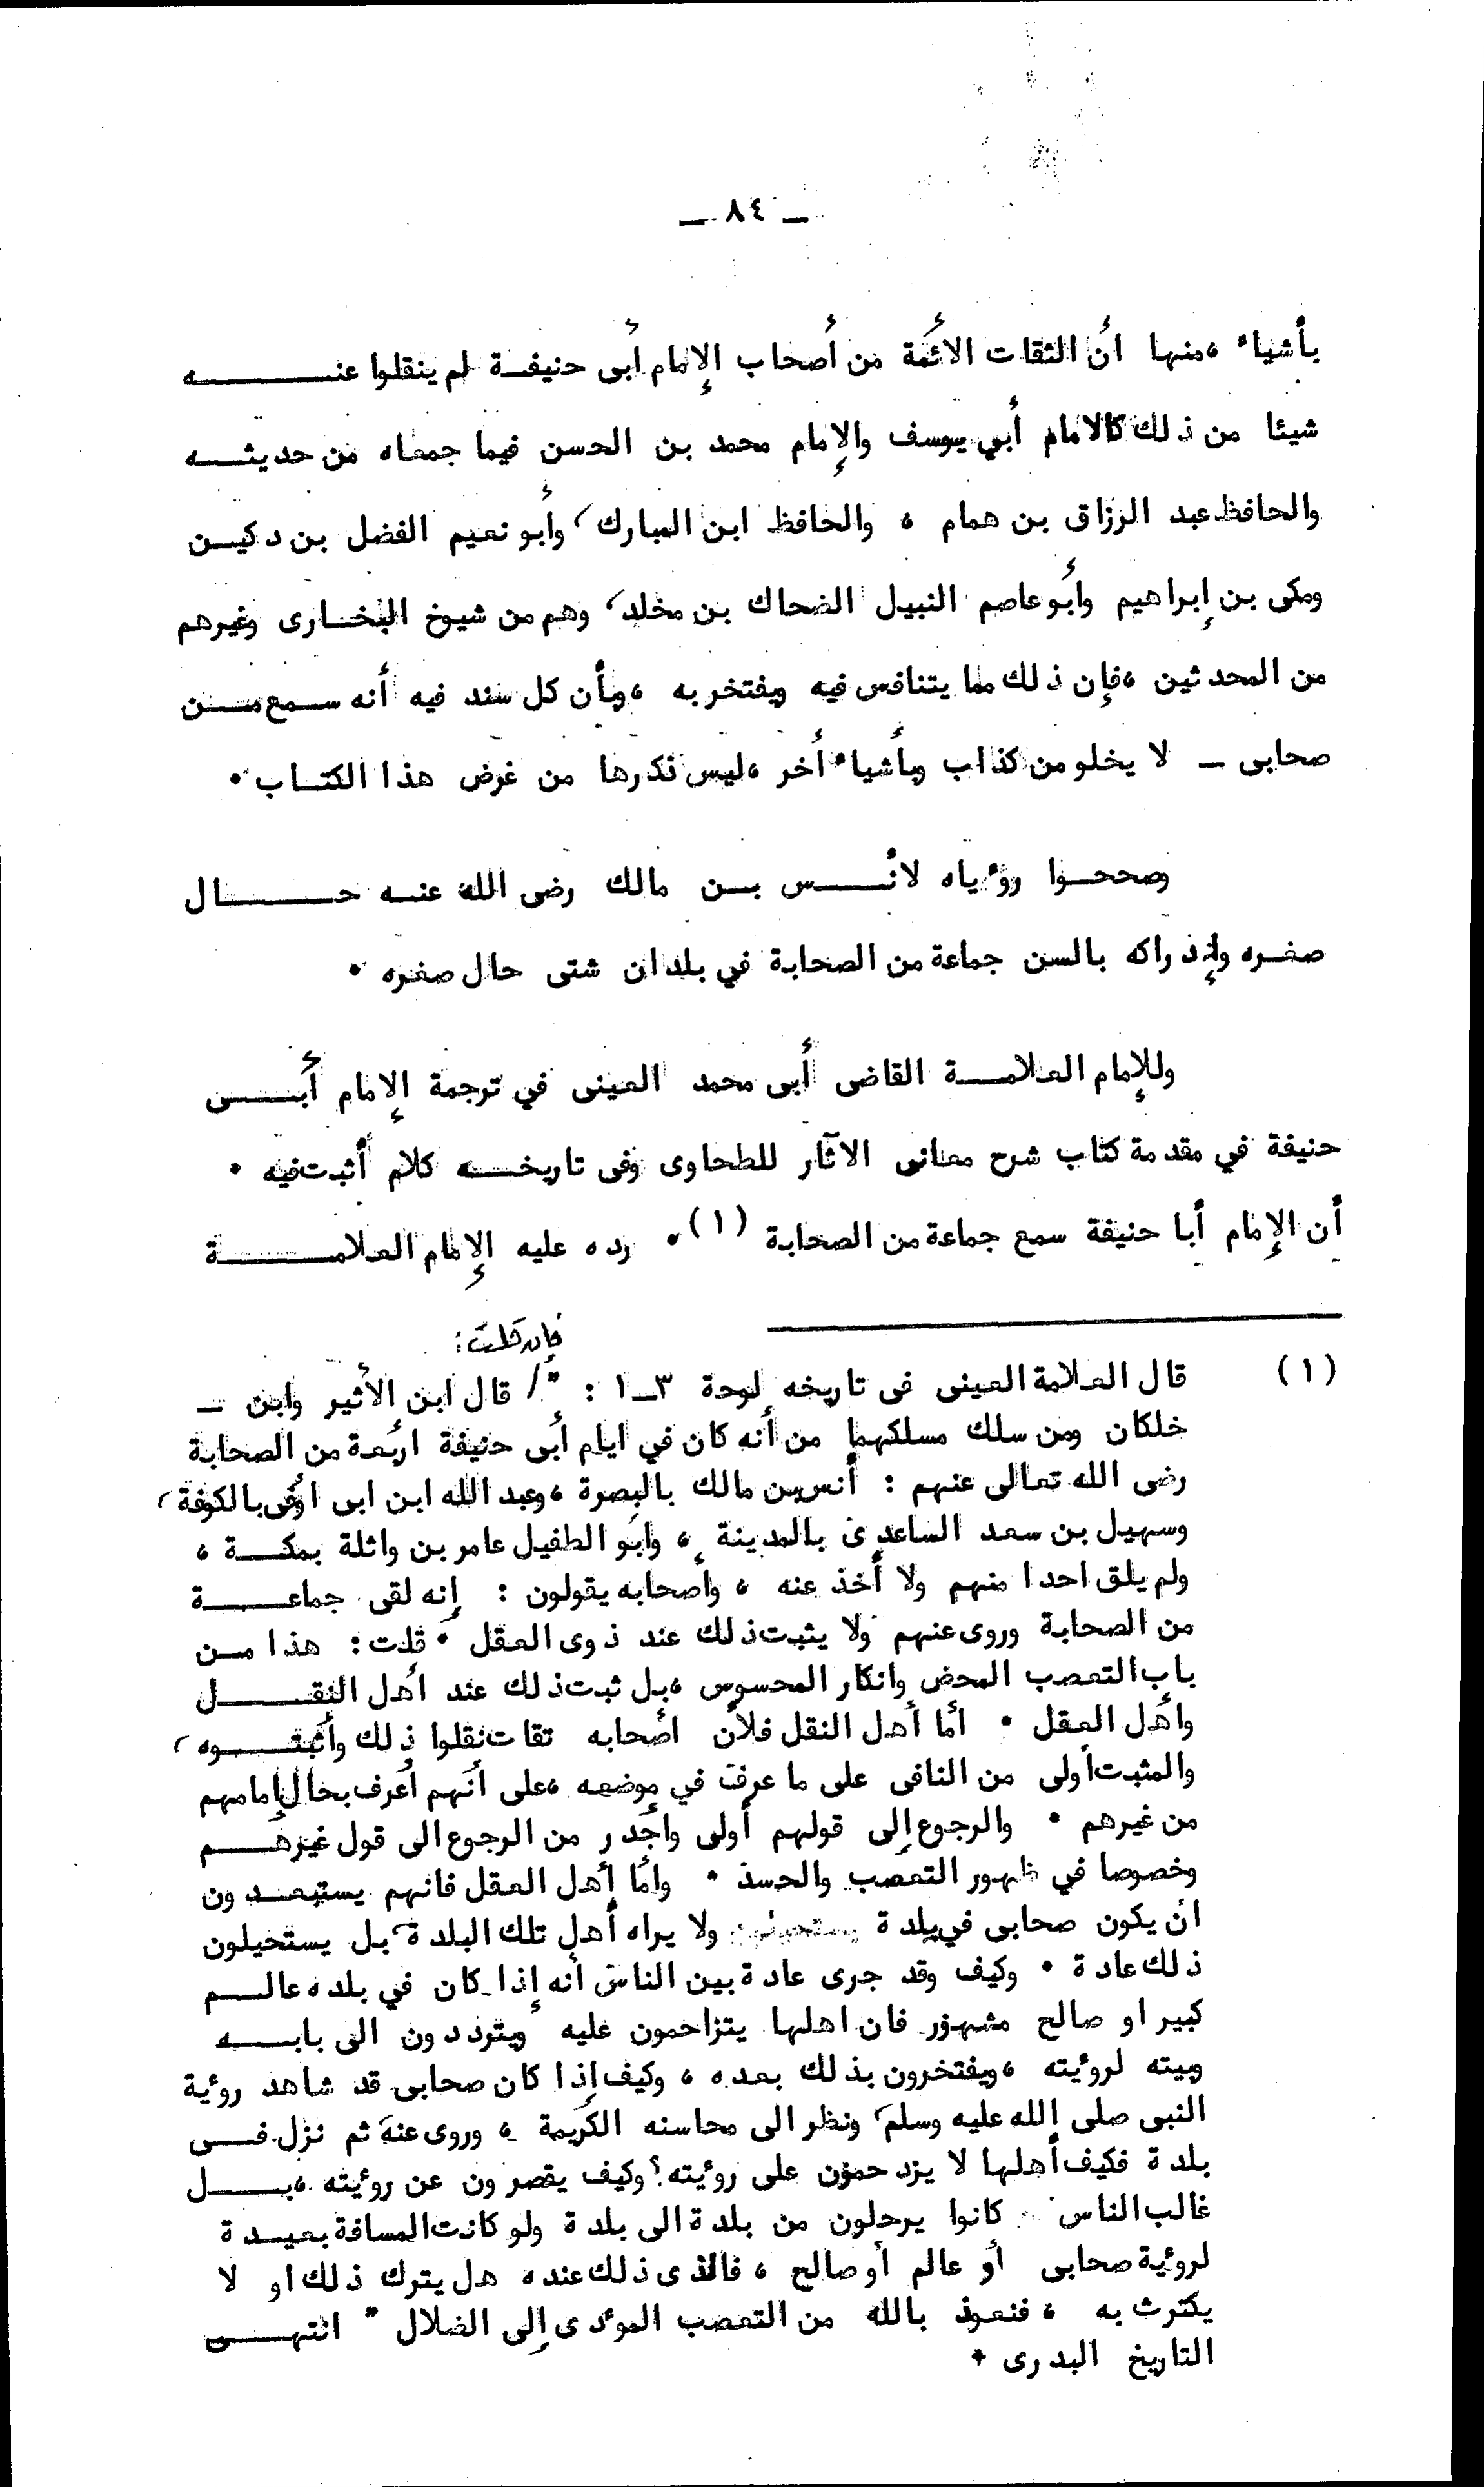 ـ ٨٤ ـ
بأشياء ،منها أن الثقات الأئمة من أصحاب الإمام أبى حنيفة لم ينقلوا عنه
شيئا من ذلك كالامام أبي يوسف والإمام محمد بن الحسن فيما جمعاه من حديثه
والحافظ عبد الرزاق بن همام ، والحافظ ابن المبارك، وأبو نعيم الفضل بن دكين
ومكى بن إبراهيم وأبو عاصم النبيل الضحاك بن مخلد، وهم من شيوخ البخارى وغيرهم
من المحدثين ،فإن ذلك مما يتنافس فيه ويفتخر به ،وبأن كل سند فيه أنه سمع من
صحابى ـ لا يخلو من كذاب وبأشياء أخر ،ليس ذكرها من غرض هذا الكتاب .
وصححوا رؤياه لأنس بن مالك رضى الله عنه حال
صغره وإدراكه بالسن جماعة من الصحابة في بلدان شتى حال صغره .
وللإمام العلامة القاضى أبى محمد العينى في ترجمة الإمام أبى
حنيفة في مقدمة كتاب شرح معانى الآثار للطحاوى وفى تاريخه كلام أثبت فيه .
أن الإمام أبا حنيفة سمع جماعة من الصحابة (١). رده عليه الإمام العلامة
فإن قلت:
(١) قال العلامة العينى فى تاريخه لوحة ٣ـ١ : "/ قال ابن الأثير وابن ـ
خلكان ومن سلك مسلكهما من أنه كان في ايام أبى حنيفة اربعة من الصحابة
رضى الله تعالى عنهم : أنس بن مالك بالبصرة ،وعبد الله ابن ابى اوفى بالكوفة،
وسهيل بن سعد الساعدى بالمدينة ، وابو الطفيل عامر بن واثلة بمكة ،
ولم يلق احدا منهم ولا أخذ عنه ، وأصحابه يقولون : إنه لقى جماعة
من الصحابة وروى عنهم ولا يثبت ذلك عند ذوى العقل . قلت : هذا من
باب التعصب المحض وانكار المحسوس ،بل ثبت ذلك عند أهل النقل
وأهل العقل . أما أهل النقل فلأن اصحابه تقات نقلوا ذلك وأثبتوه،
والمثبت أولى من النافى على ما عرف في موضعه ،على أنهم أعرف بحال إمامهم
من غيرهم . والرجوع إلى قولهم أولى واجدر من الرجوع الى قول غيرهم
وخصوصا في ظهور التعصب والحسد . واما أهل العقل فانهم يستبعدون
ان يكون صحابى في بلدة ولا يراه أهل تلك البلدة، بل يستحيلون
ذلك عادة . وكيف وقد جرى عادة بين الناس أنه إذا كان في بلده عالم
كبير او صالح مشهور فان اهلها يتزاحمون عليه ويترددون الى بابه
وبيته لرؤيته ،ويفتخرون بذلك بعده ، وكيف إذا كان صحابى قد شاهد رؤية
النبى صلى الله عليه وسلم، ونظر الى محاسنه الكريمة ، وروى عنه ثم نزل فى
بلدة فكيف أهلها لا يزدحمون على رؤيته؟ وكيف يقصرون عن رؤيته ،بل
غالب الناس كانوا يرحلون من بلدة الى بلدة ولو كانت المسافة بعيدة
لرؤية صحابى أو عالم أو صالح ، فالذى ذلك عنده هل يترك ذلك او لا
يكترث به ، فنعوذ بالله من التعصب المؤدى إلى الضلال " انتهى
التاريخ البدرى .